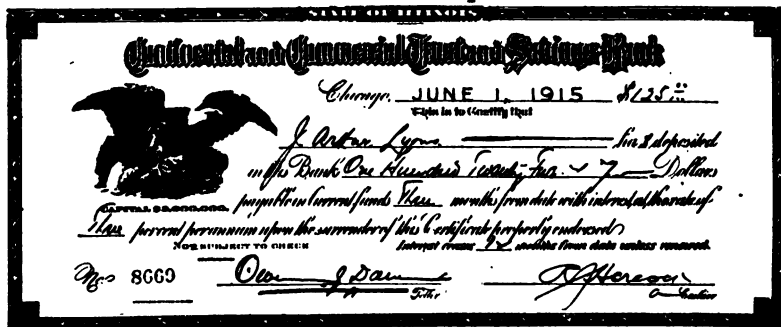 STATE OF ILLINOIS
Continental and Commercial Trust and Savings Bank
Chicago, JUNE 1, 1915 $125.00
This is to Certify that
J. Arthur Lyons has deposited
in this Bank One Hundred Twenty Five Dollars
payable in Current funds Three months from date with interest at the rate of
Three per cent per annum upon the surrender of this Certificate properly endorsed
CAPITAL $3,000,000.
NOT SUBJECT TO CHECK Interest ceases 12 months from date unless renewed.
No. 8669 Teller Cashier